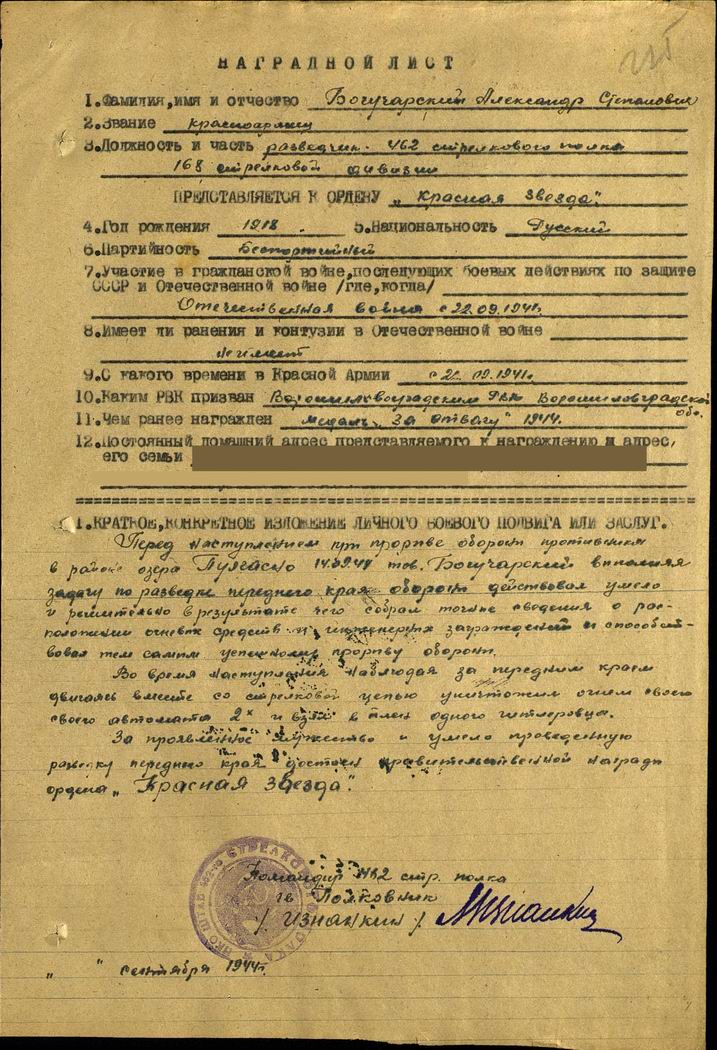 225
НАГРАДНОЙ ЛИСТ
1.Фамилия,имя и отчество Богучарский Александр Степанович
2.Звание красноармеец
3.Должность и часть разведчик 462 стрелкового полка
168 стрелковой дивизии
ПРЕДСТАВЛЯЕТСЯ К ОРДЕНУ „красная звезда".
4.Год рождения 1918. 5.Национальность Русский
6.Партийность Беспартийный
7.Участие в гражданской войне,последующих боевых действиях по защите
СССР и Отечественной войне /где,когда/
Отечественная война с 22.09.1941г.
8.Имеет ли ранения и контузии в Отечественной войне
не имеет
9.С какого времени в Красной Армии с 22.09.1941г.
10.Каким РВК призван Ворошиловградским РВК Ворошиловградской
обл.
11.Чем ранее награжден медаль „За отвагу" 1944г.
12.Постоянный домашний адрес представляемого к награждению и адрес,
его семьи
1.КРАТКОЕ,КОНКРЕТНОЕ ИЗЛОЖЕНИЕ ЛИЧНОГО БОЕВОГО ПОДВИГА ИЛИ ЗАСЛУГ.
Перед наступлением при прорыве обороны противника
в районе озера 14.09.44 тов. Богучарский выполняя
задачу по разведке переднего края обороны действовал умело
и решительно в результате чего собрал точные сведения о рас-
положении огневых средств и инженерных заграждений и способст-
вовал тем самым успешному прорыву обороны.
Во время наступления наблюдая за передним краем
двигаясь вместе со стрелковой цепью уничтожил огнем своего
своего автомата 2х и взял в плен одного гитлеровца.
За проявленное мужество и умело проведенную
разведку переднего края достоин правительственной награды
ордена „Красная звезда".
Командир 462 стр. полка
гв Полковник
/ ИЗНАНКИН /
„ " сентября 1944г.